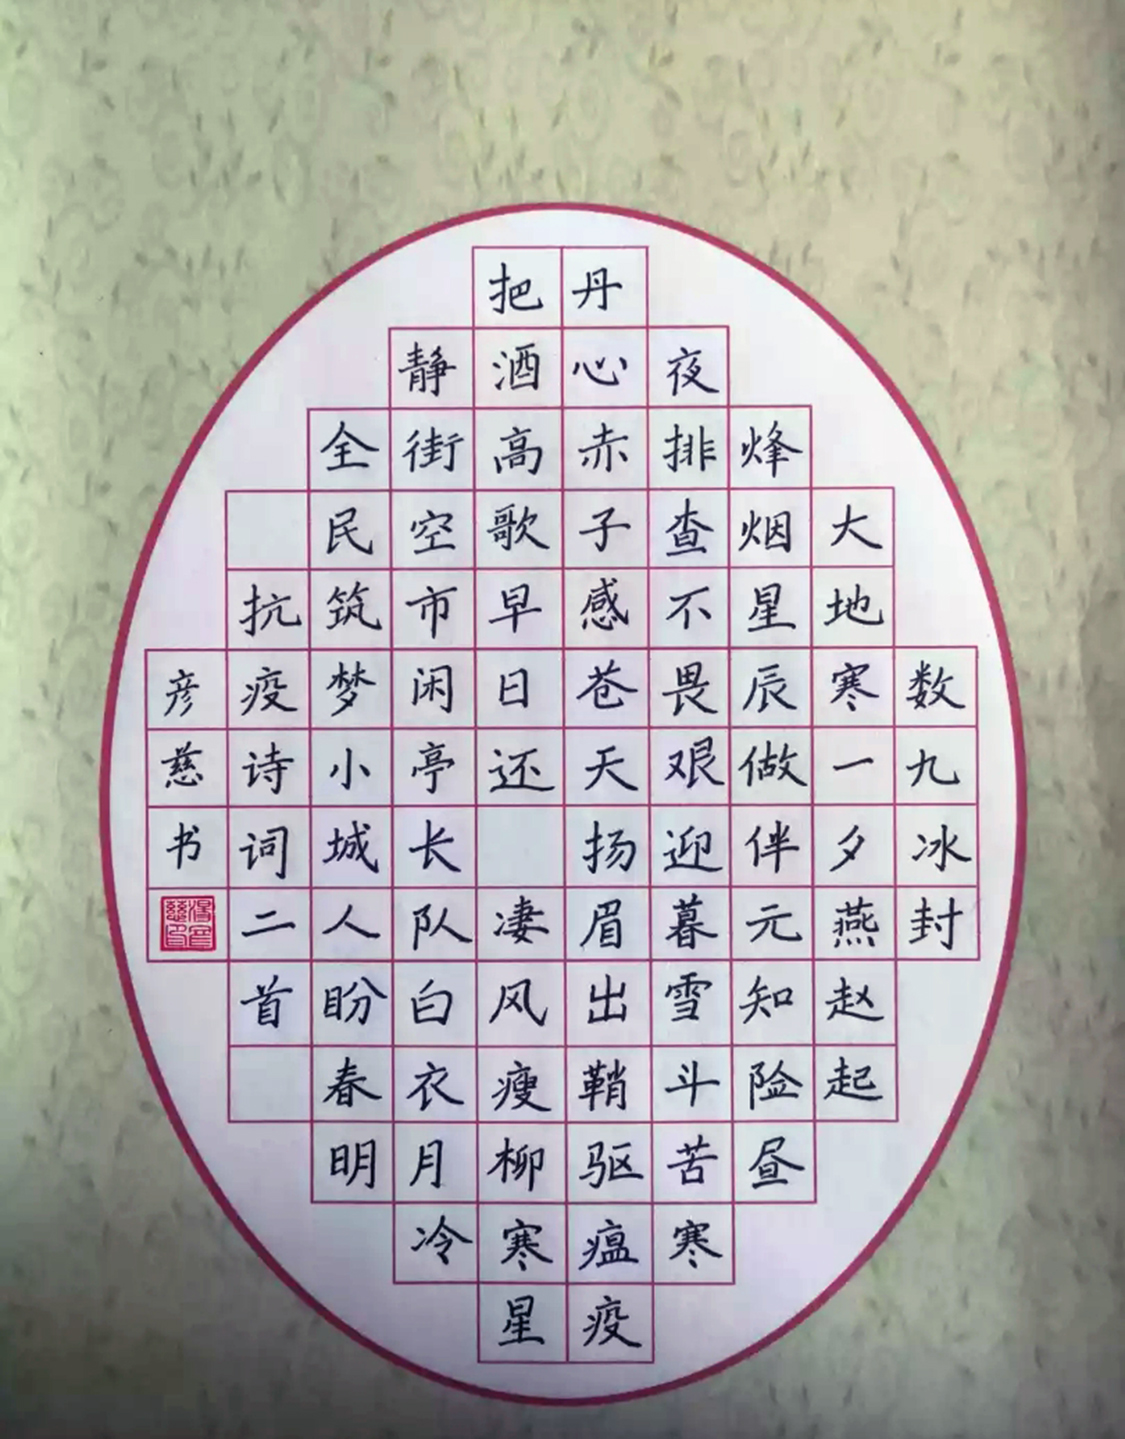 数九冰封
大地寒一夕燕赵起
烽烟星辰做伴元知险昼
夜排查不畏艰迎暮雪斗苦寒
丹心赤子感苍天扬眉出鞘驱瘟疫
把酒高歌早日还 凄风瘦柳寒星
静街空市闲亭长队白衣月冷
全民筑梦小城人盼春明
抗疫诗词二首
彦慈书